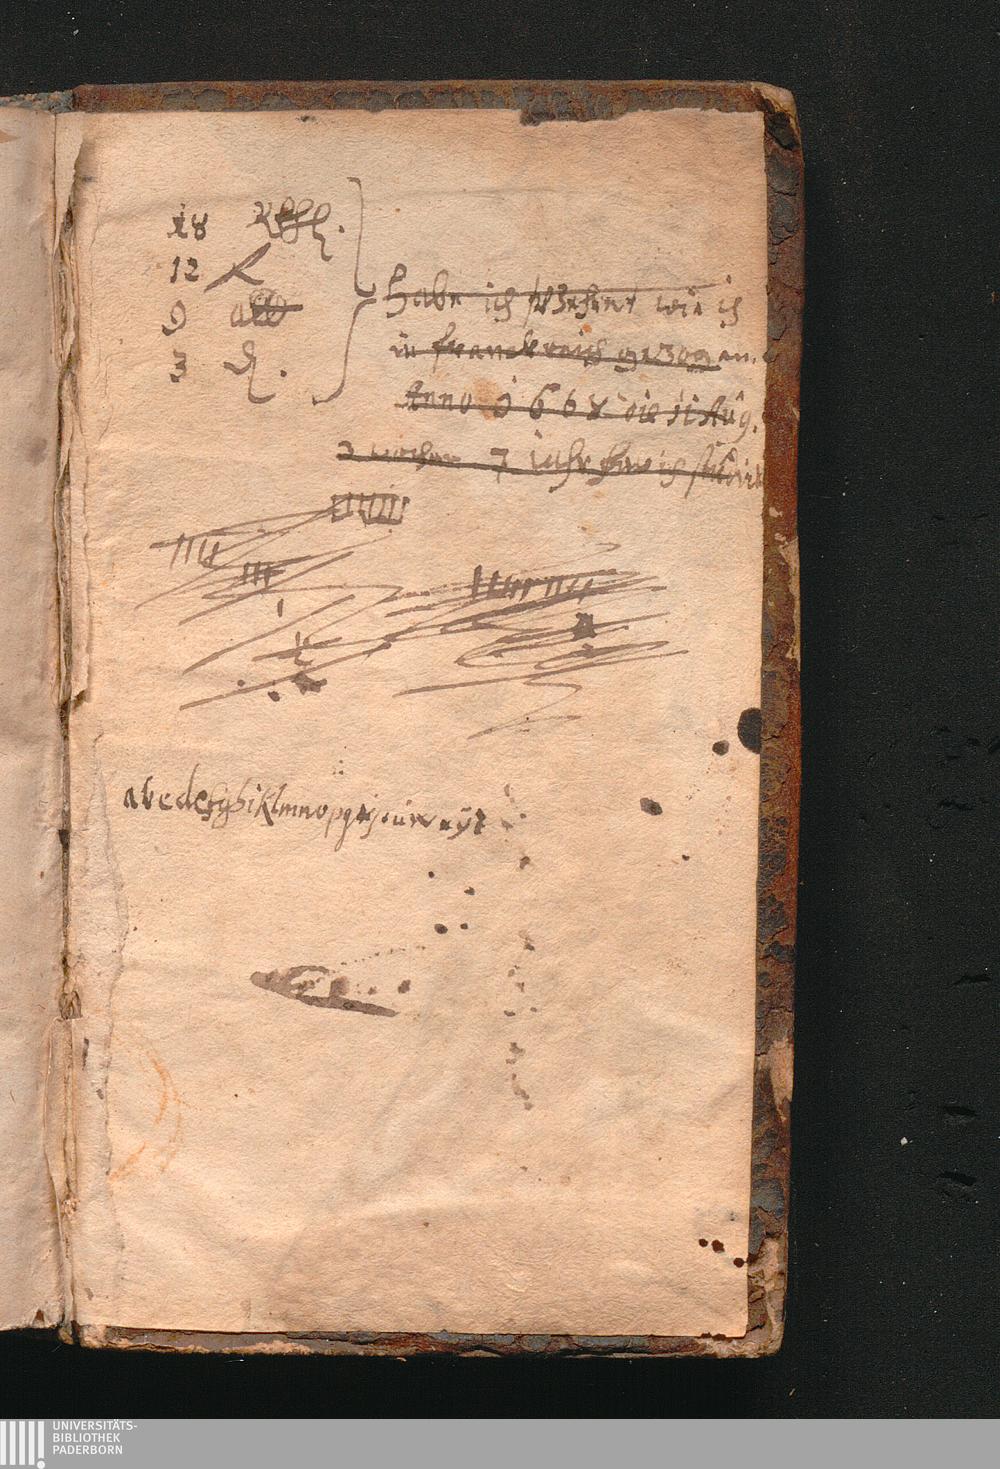 18 Rthl.
12 ß
9 alb
3 d.
Habe ich wie ich
in franckreich gezogen.
Anno 1668 die 11 Aug.
7 iahr ich studirt
abcdefghiklmnopqrstuvwxyz
UNIVERSITÄTS-
BIBLIOTHEK
PADERBORN